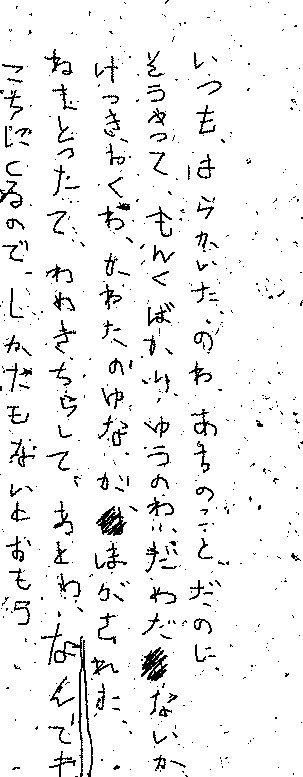 いつも、はらかいた、のわ、あまのことだのに、
そうやって、もんくばかり、ゆうのわ、だわだないか
けつき、おくわ、かねたのゆな、が、ほがされた、
ねまとったて、わめきちらして、あとわ、なんでオ
こちにくるので、しかたもないとおもう